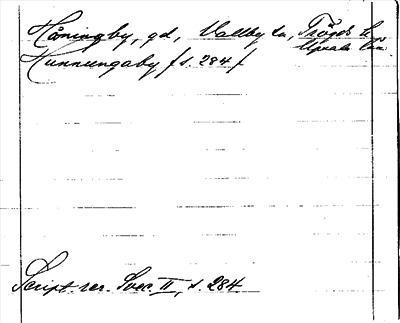 Håningby, gd, Vallby sn, Trögds h.
Upsala län.
Hunnungaby /s. 284/
Script. rer. Svec. II, s. 284